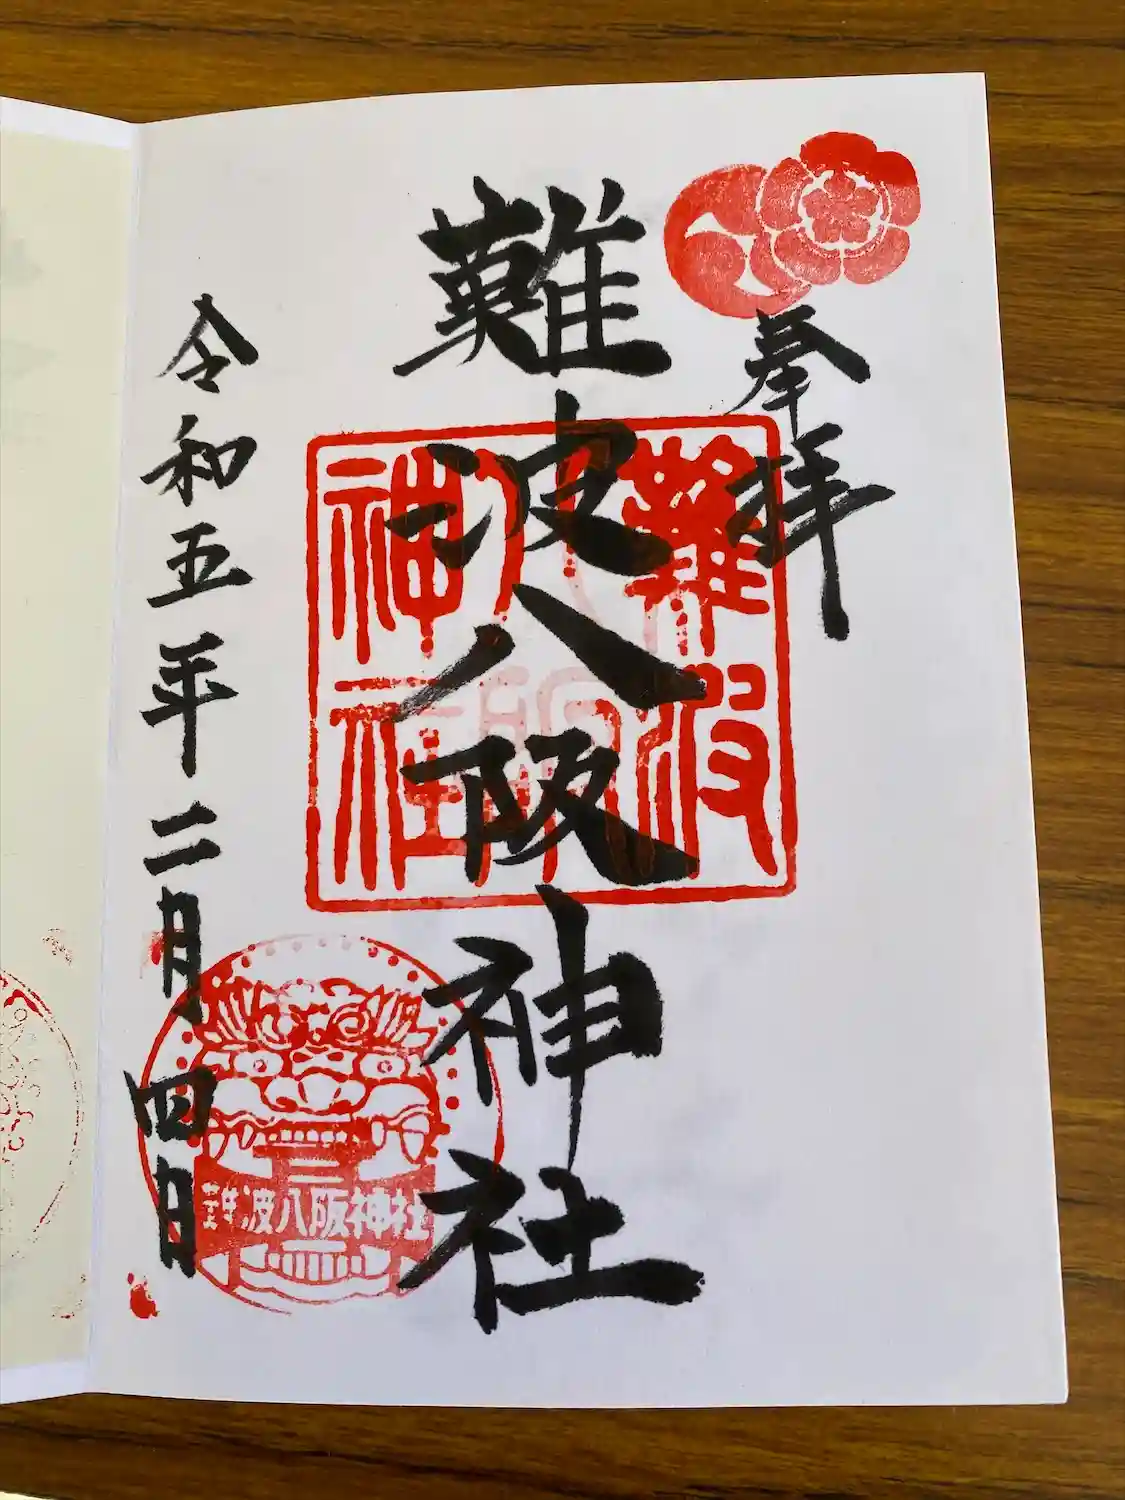 奉拝
難波八阪神社
難波
八阪
神社
令和五年二月四日
難波八阪神社